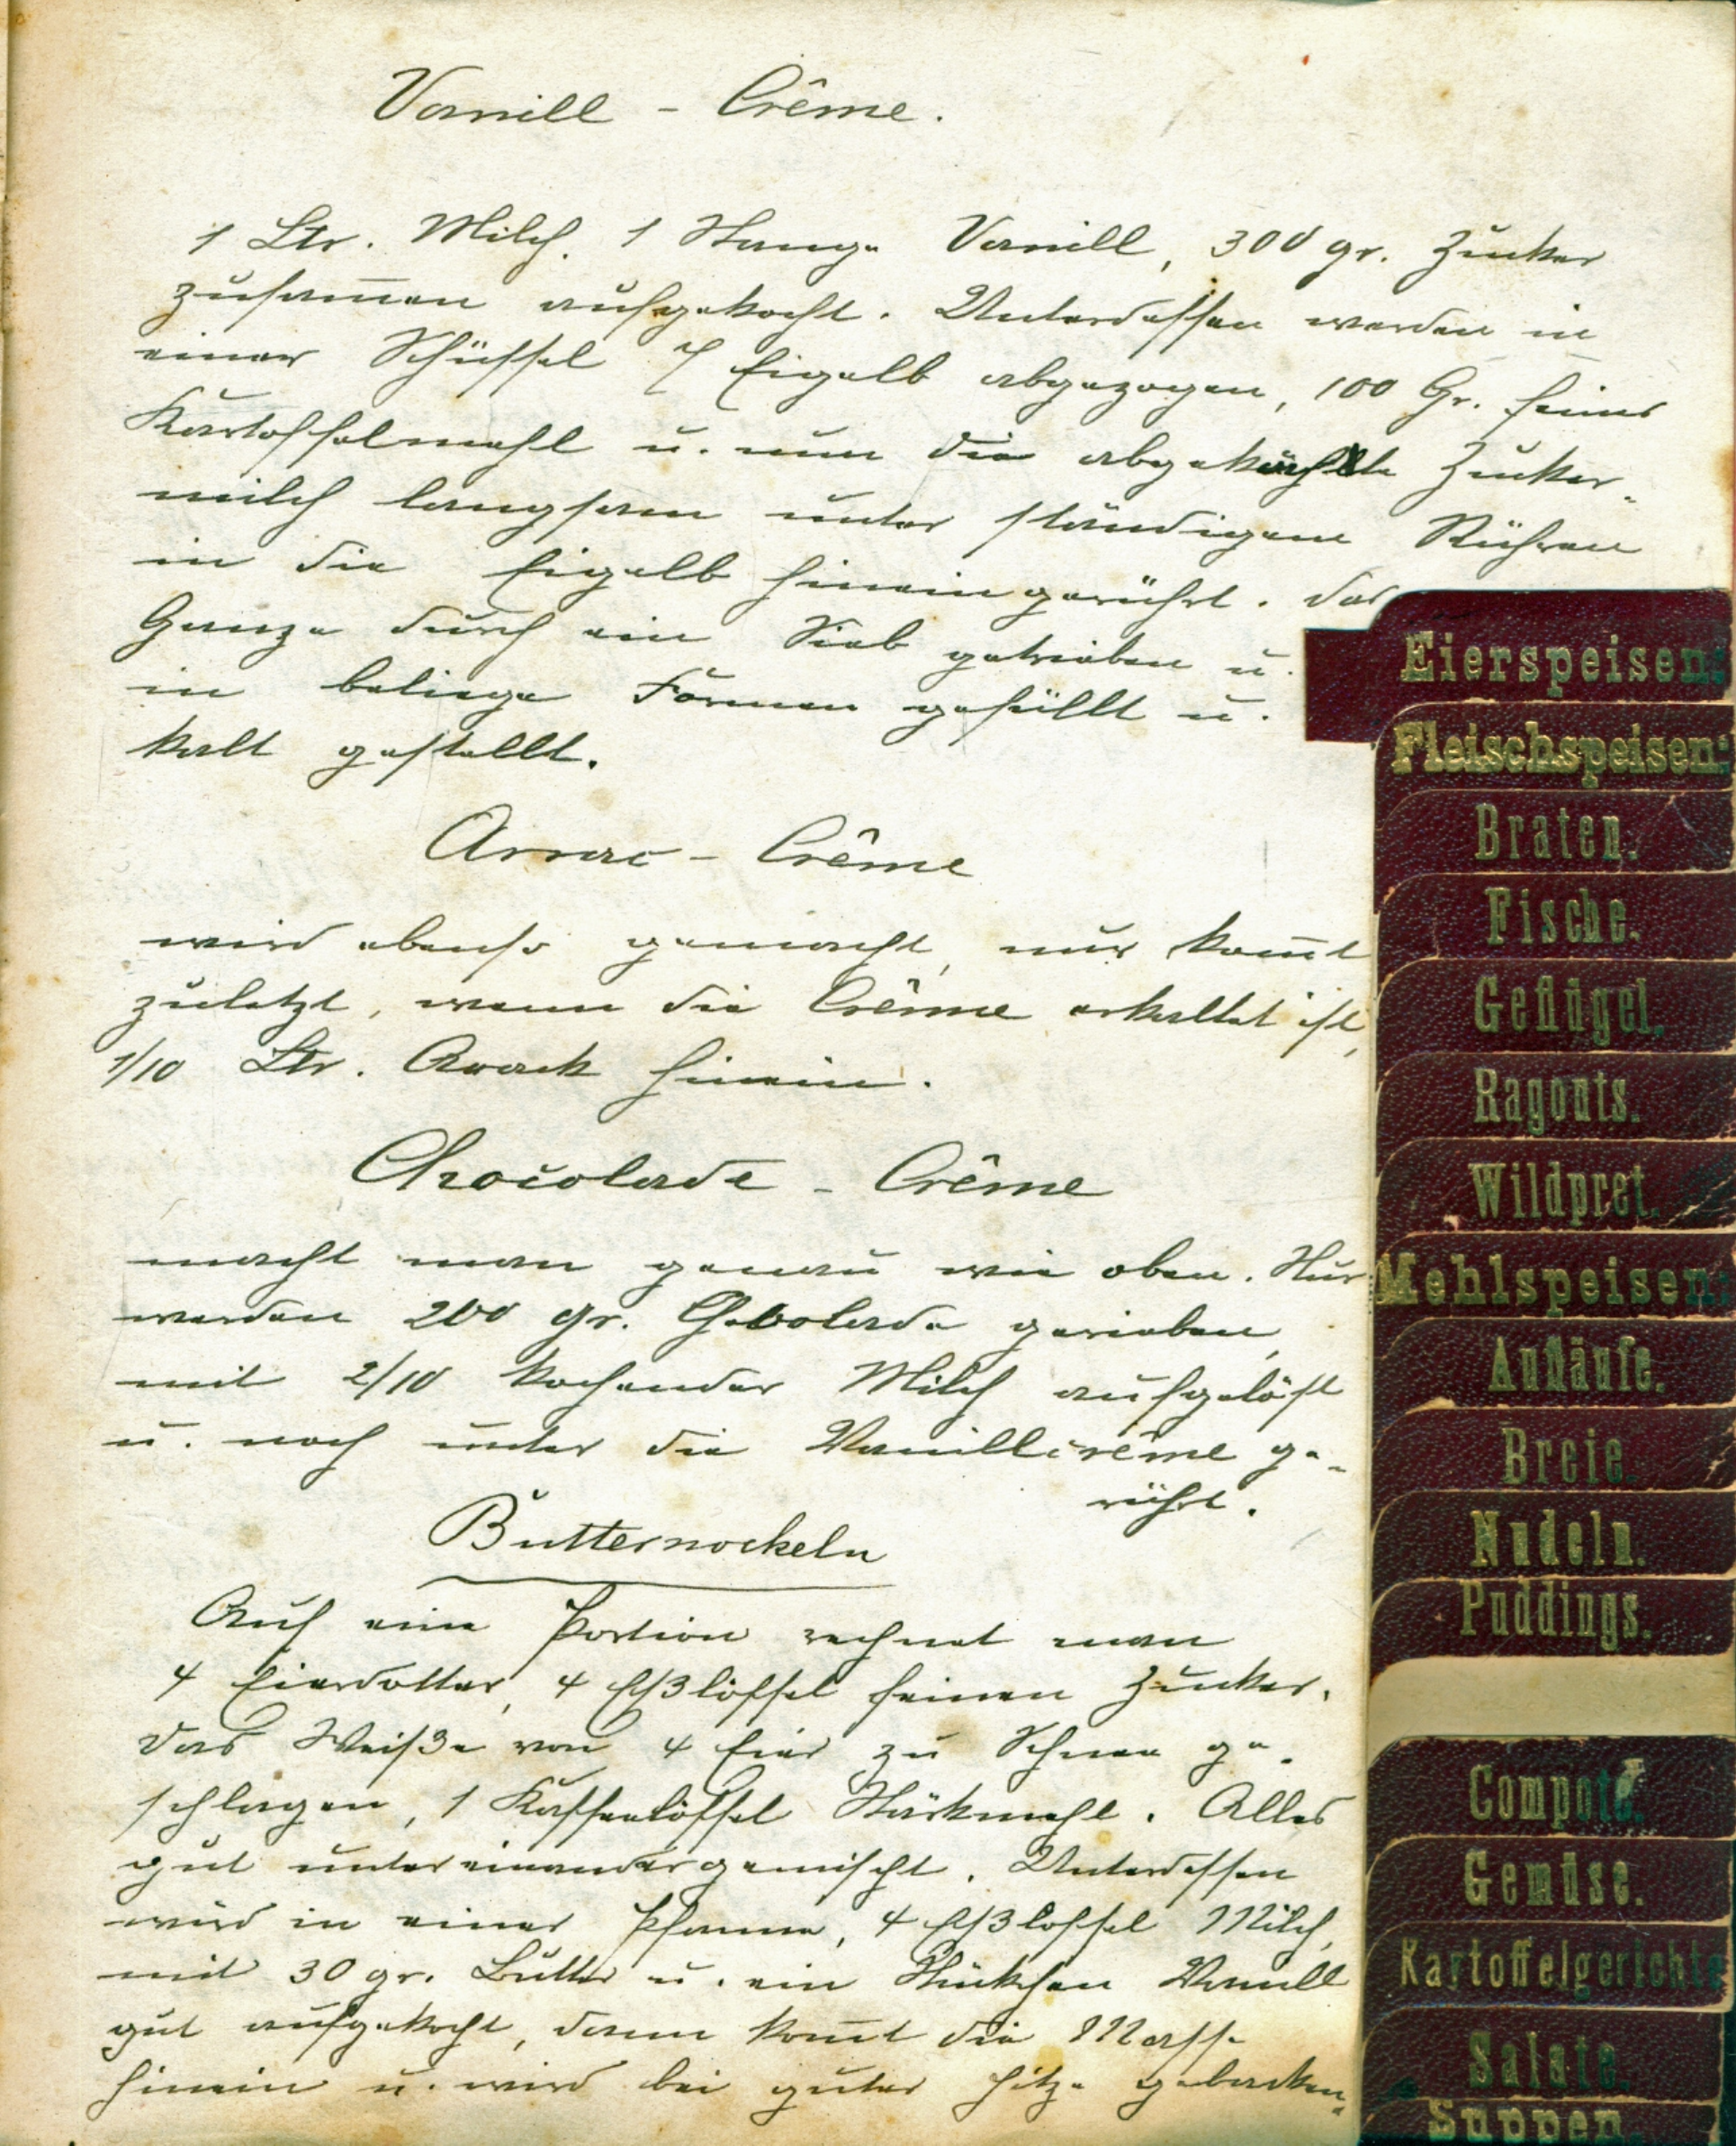 Vanill - Crême.
1 Ltr. Milch, 1 Stange Vanill, 300 gr. Zucker
zusam̅en aufgekocht. Unterdessen werden in
einer Schüssel 7 Eigelb abgezogen, 100 Gr. feines
Kartoffelmehl u. nun die abgekühlte Zucker-
milch langsam unter ständigem Rühren
in die Eigelb hineingerührt. Das
Ganze durch ein Sieb getrieben u.
in beliege Formen gefüllt u.
kalt gestellt.
Arrac - Crême
wird ebenso gemacht, nur kom̅t
zuletzt, wenn die Crême erkaltet ist,
1/10 Ltr. Arack hinein.
Chocolade - Crême
macht man genau wie oben. Nur
werden 200 gr. Chocolade gerieben,
mit 2/10 kochender Milch aufgelöst
u. noch unter die Vanillcrême ge-
rührt.
Butternockeln
Auf eine Portion rechnet man
4 Eierdotter, 4 Eßlöffel feinen Zucker.
Das Weiße von 4 Eier zu Schnee ge-
schlagen, 1 Kaffeelöffel Stärkmehl. Alles
gut untereinandergemischt. Unterdessen
wird in einer Pfanne, 4 Eßloffel Milch,
mit 30 gr. Butter u. ein Stückchen Vanill
gut aufgekocht, dann kom̅t die Masse
hinein u. wird bei guter Hitze gebacken.
Eierspeisen:
Fleischspeisen:
Braten.
Fische.
Geflügel.
Ragouts.
Wildpret.
Mehlspeisen:
Aufläufe.
Breie.
Nudeln.
Puddings.
Compote.
Gemüse.
Kartoffelgerichte
Salate.
Suppen.